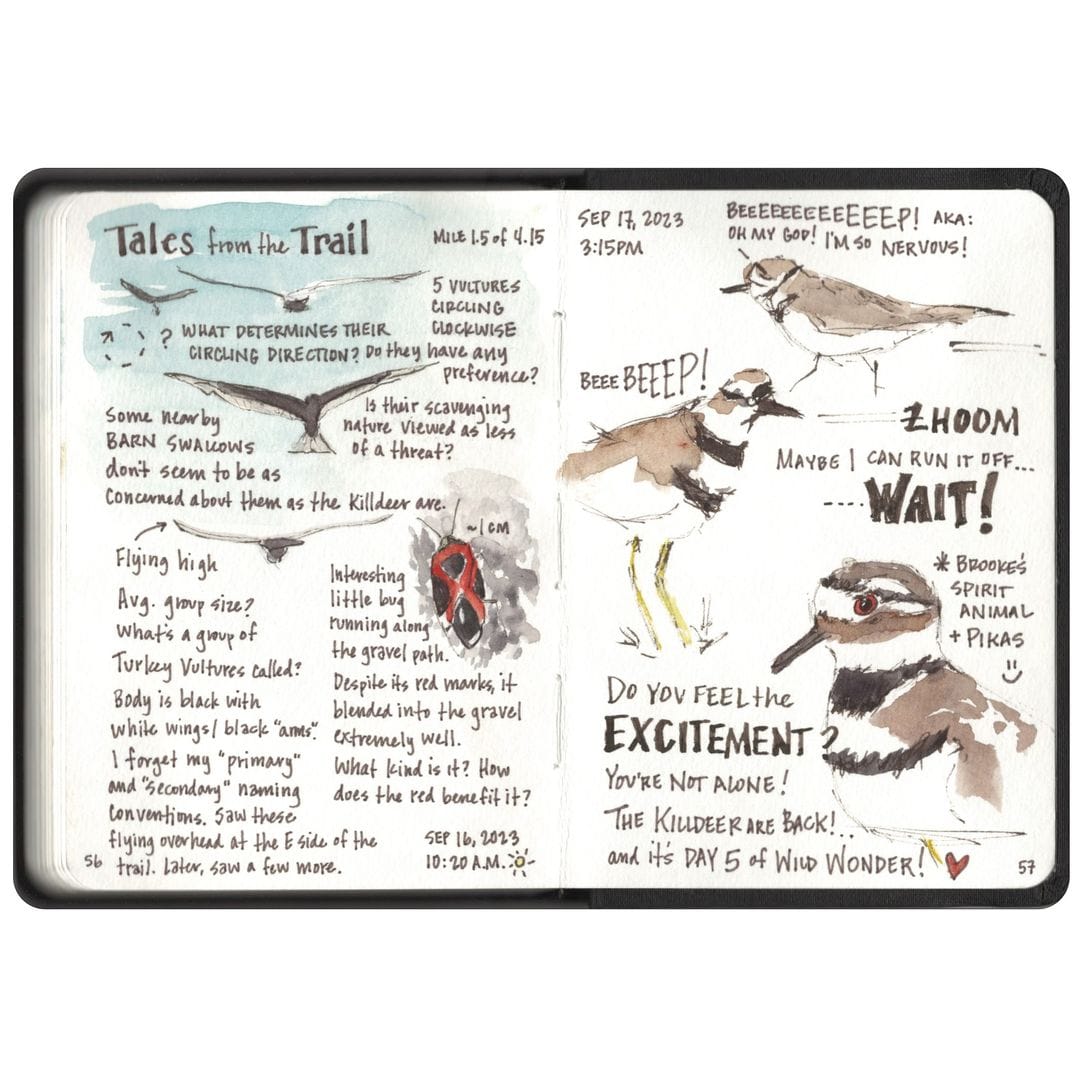 Tales from the Trail
MILE 1.5 of 4.15
5 VULTURES
CIRCLING
CLOCKWISE
? WHAT DETERMINES THEIR
CIRCLING DIRECTION? Do they have any
preference?
Is their scavenging
nature viewed as less
of a threat?
Some nearby
BARN SWALLOWS
don't seem to be as
concerned about them as the Killdeer are.
Flying high
Avg. group size?
What's a group of
Turkey Vultures called?
Body is black with
white wings/black "arms".
I forget my "primary"
and "secondary" naming
conventions. Saw these
flying overhead at the E side of the
trail. Later, saw a few more.
~1 CM
Interesting
little bug
running along
the gravel path.
Despite its red marks, it
blended into the gravel
extremely well.
What kind is it? How
does the red benefit it?
SEP 16, 2023
10:20 A.M.
56
SEP 17, 2023
3:15PM
BEEEEEEEEEEEEP! AKA:
OH MY GOD! I'M SO NERVOUS!
BEEE BEEEP!
ZHOOM
MAYBE I CAN RUN IT OFF...
----WAIT!
* BROOKE'S
SPIRIT
ANIMAL
+ PIKAS
DO YOU FEEL the
EXCITEMENT?
YOU'RE NOT ALONE!
THE KILLDEER ARE BACK!...
and it's DAY 5 of WILD WONDER!
57